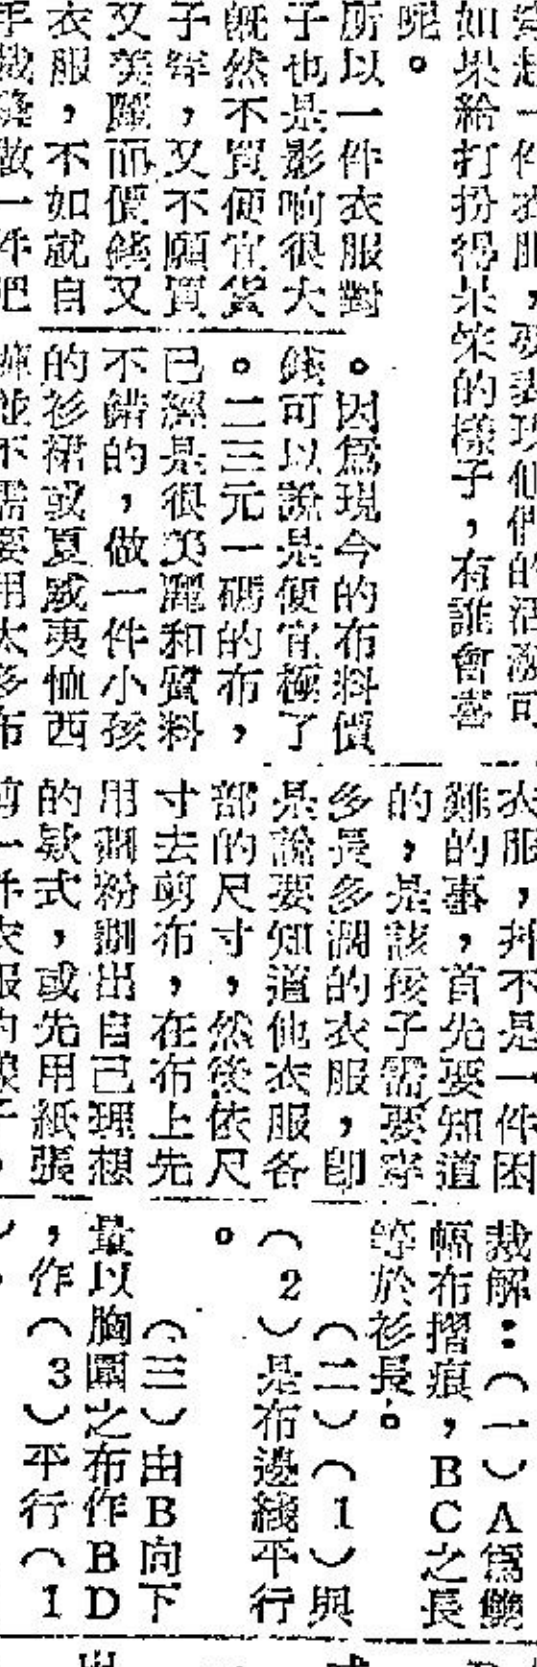 如果給打扮得呆笨的樣子，有誰會喜
呢。
所以一件衣服對
子也是影响很大
旣然不買便宜貨
子穿，又不願買
又美麗而價錢又
衣服，不如就自
手裁縫做一件吧
。因爲現今的布料價
錢可以說是便宜極了
。二三元一碼的布，
已經是很美麗和質料
不錯的，做一件小孩
的衫裙或夏威夷恤西
褲並不需要用太多布
衣服，幷不是一件困
難的事，首先要知道
的，是該孩子需要穿
多長多濶的衣服，卽
是說要知道他衣服各
部的尺寸，然後依尺
寸去剪布，在布上先
用粉劃出自己理想
的欵式，或先用紙張
剪一件衣服的樣子，
裁解：（一）A爲雙
幅布摺痕，BC之長
等於衫長。
（二）（1）與
（2）是布邊綫平行
。
（三）由B向下
量以胸圍之布作BD
，作（3）平行（1